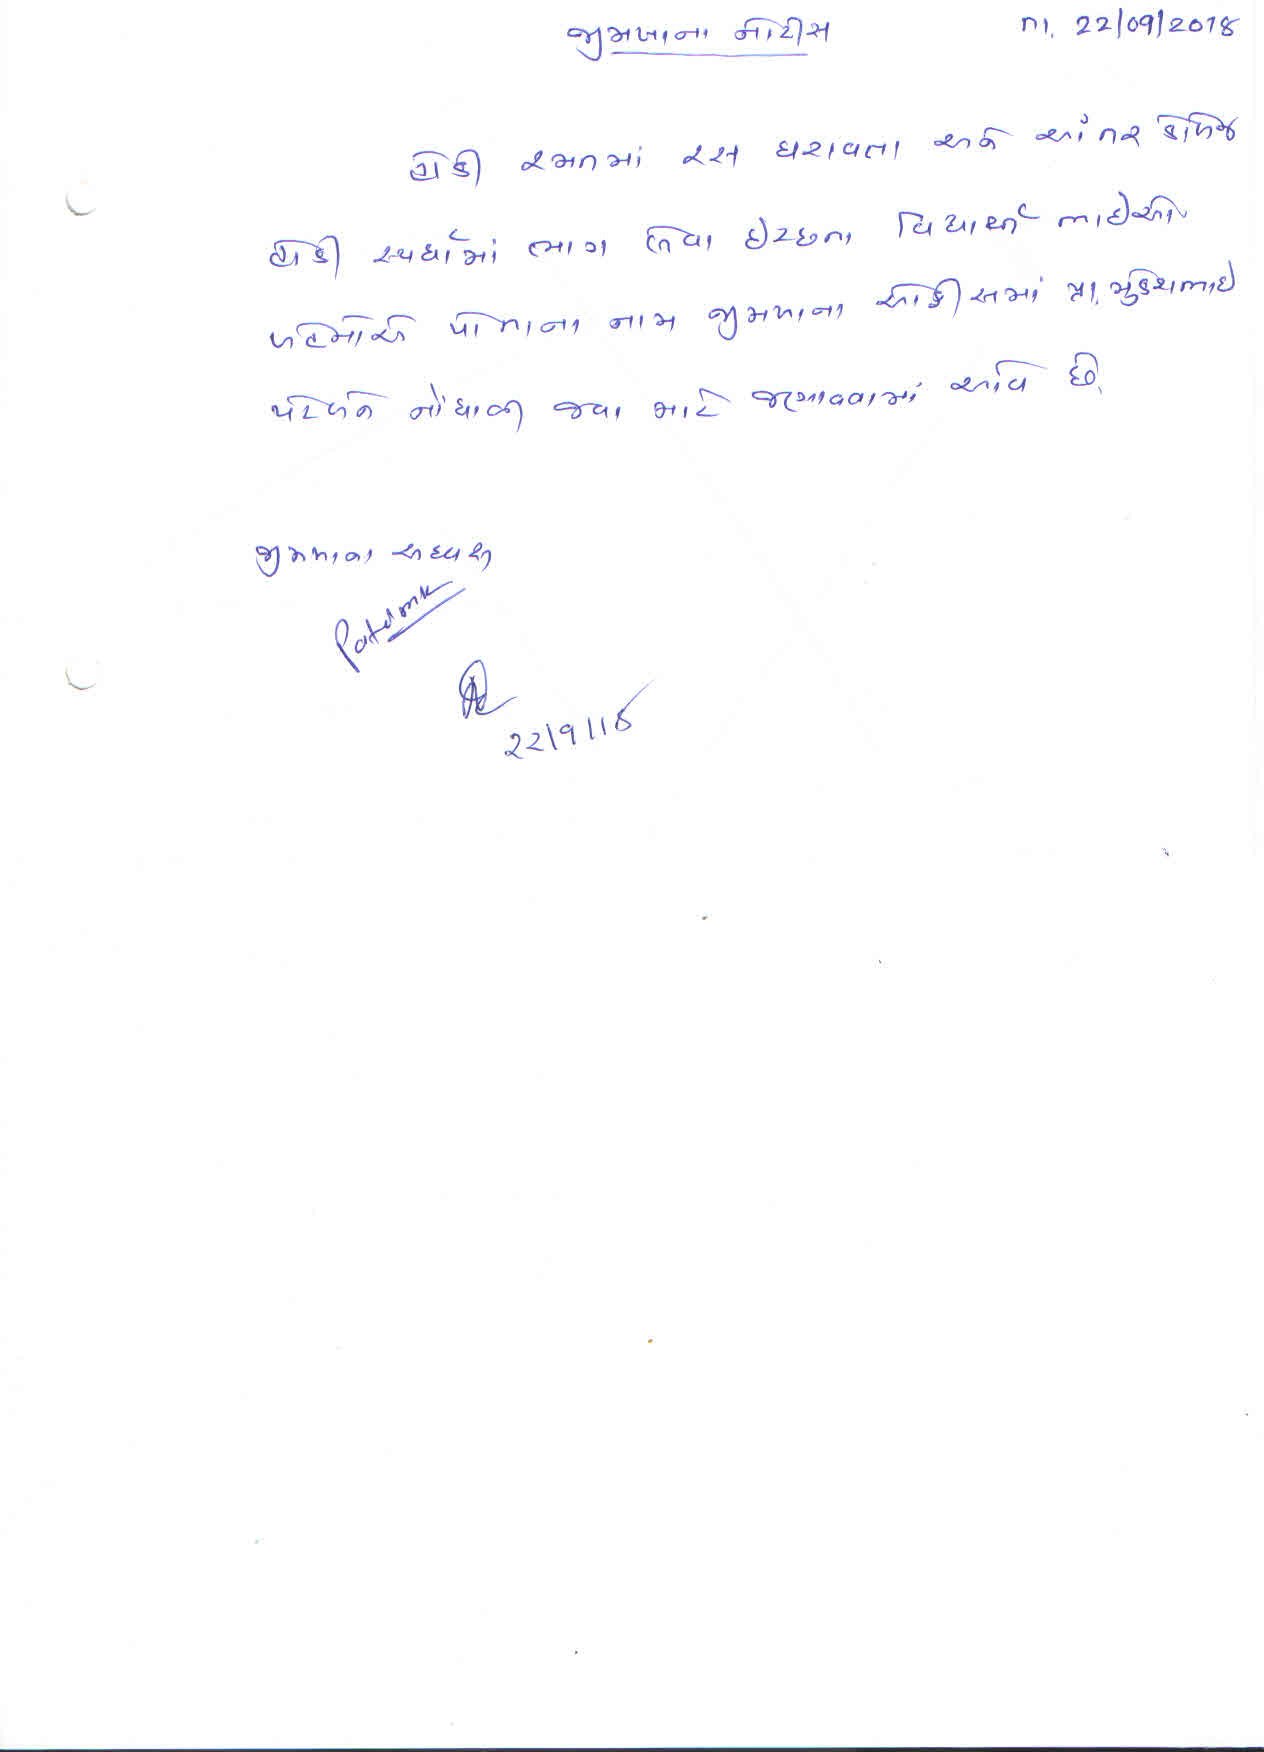 જીમખાના નોટીસ
તા. 22/09/2018
હોકી રમતમાં રસ ધરાવતા અને આંતર કોલેજ
હોકી સ્પર્ધામાં ભાગ લેવા ઈચ્છતા વિદ્યાર્થી ભાઈઓ
બહેનોએ પોતાના નામ જીમખાના ઓફીસમાં પ્રા. મુકેશભાઇ
પટેલને નોંધાવી જવા માટે જણાવવામાં આવે છે.
જીમખાના અધ્યક્ષ
Patel mk
22/9/18